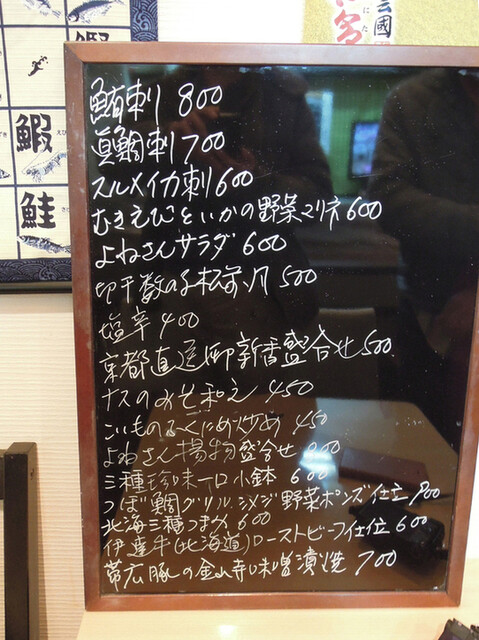 鮪刺 800
真鯛刺 700
スルメイカ刺 600
むきえびといかの野菜マリネ 600
よねさんサラダ 600
切干数の子松前 500
塩辛 400
京都直送 新香盛合せ 500
ナスのみそ和え 450
450
よねさん揚物盛合せ
三種珍味一口小鉢 600
つぼ鯛グリル 野菜ポンズ仕立
北海三種つまみ 600
伊達牛(北海道)ローストビーフ仕位 600
帯広豚の金山寺味噌漬焼 700
蝦
えび
鮭
雲國